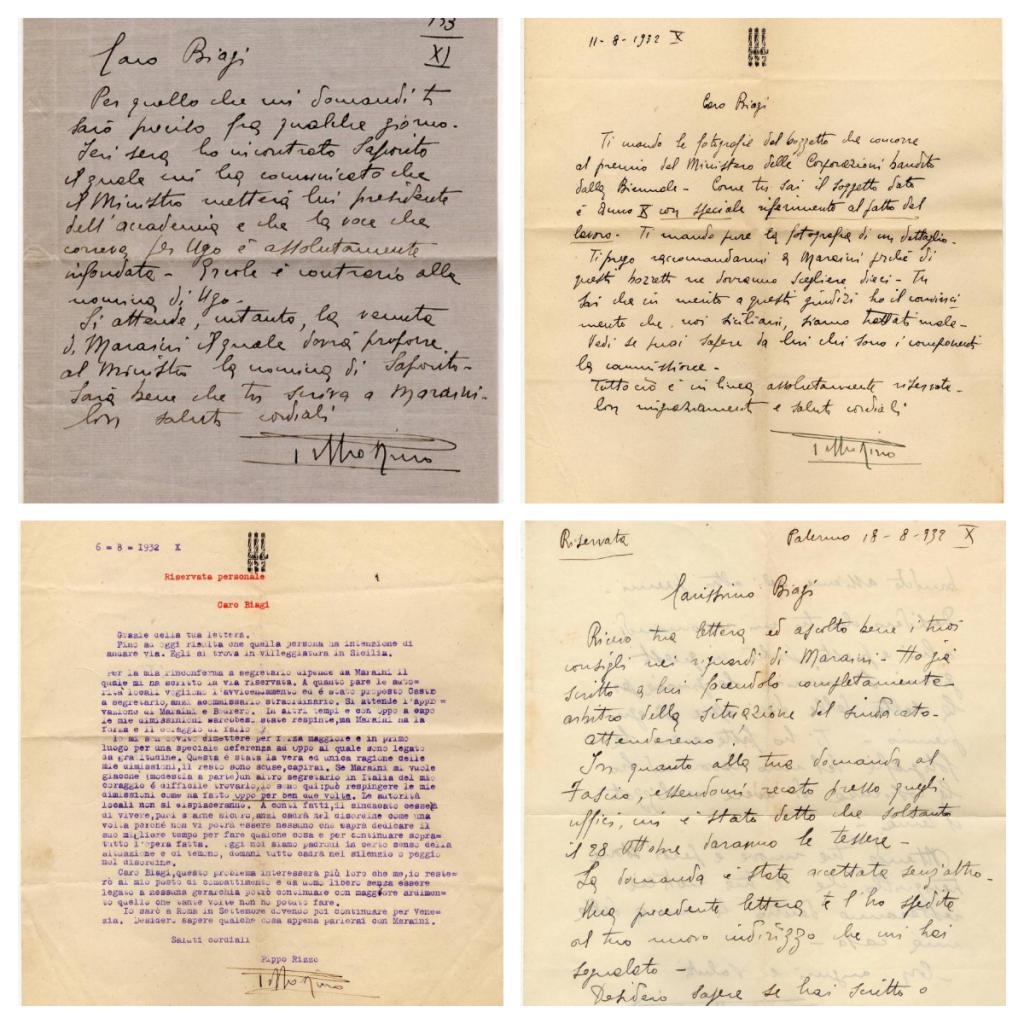 XI
Caro Biagi
Per quello che mi domandi ti
sarò preciso fra qualche giorno.
Ieri sera ho incontrato Saporito
il quale mi ha comunicato che
il Ministro metterà lui presidente
dell'accademia e che la voce che
correva per Ugo è assolutamente
infondata - Ercole è contrario alla
nomina di Ugo.
Si attende, intanto, la venuta
di Maraini il quale dovrà proporre
al Ministro la nomina di Saporito -
Sarà bene che tu scriva a Maraini -
Con saluti cordiali
Pippo Rizzo
11-8-1932 X
Caro Biagi
Ti mando le fotografie del bozzetto che concorre
al premio del Ministero delle Corporazioni bandito
dalla Biennale - Come tu sai il soggetto dato
è Anno X con speciale riferimento al fatto del
lavoro - Ti mando pure la fotografia di un dettaglio -
Ti prego raccomandarmi a Maraini perchè di
questi bozzetti ne dovranno scegliere dieci - Tu
sai che in merito a questi giudizi ho il convinci
mento che, noi siciliani, siamo trattati male -
Vedi se puoi sapere da lui chi sono i componenti
la commissione -
Tutto ciò è in linea assolutamente riservata -
Con ringraziamenti e saluti cordiali
Pippo Rizzo
6 = 8 = 1932 X
Riservata personale
1
Caro Biagi
Grazie della tua lettera.
Fino ad oggi risulta che quella persona ha intenzione di
andare via. Egli si trova in villeggiatura in Sicilia.
Per la mia rinconferma a segretario dipende da Maraini il
quale mi ha scritto in via riservata. A quanto pare le auto=
rità locali vogliono l'avvicendamento ed é stato proposto Castro
a segretario, anzi acommissario straordinario. Si attende l'appro=
vazione di Maraini e Bodrero. In altri tempi e con Oppo a capo
le mie dimissioni sarebbes. state respinte, ma Maraini ha la
forza e il coraggio di farlo ?
Io mi son dovuto dimettere per forza maggiore e in primo
luogo per una speciale deferenza ad Oppo al quale sono legato
da gratitudine. Questa é stata la vera ed unica ragione delle
mie dimissioni, il resto sono scuse, capirai. Se Maraini mi vuole
giacche (modestia a parte)un altro segretario in Italia del mio
coraggio é difficile trovarlo, io sono qui; può respingere le mie
dimissioni come ha fatto Oppo per ben due volte. Le autorità
locali non si dispiaceranno. A conti fatti, il sindacato cesserà
di vivere, puoi starne sicuro, anzi cadrà nel disordine come una
volta perché non vi potrà essere nessuno che saprà dedicare il
suo migliore tempo per fare qualche cosa e per continuare sopra=
tutto l'opera fatta. Oggi noi siamo padroni in certo senso della
situazione e di temono, domani tutto cadrà nel silenzio o peggio
nel disordine.
Caro Biagi, questo problema interesserà più loro che me, io reste=
rò al mio posto di combattimento e da uomo libero senza essere
legato a nessuna gerarchia potrò continuare con maggiore ardimen=
to quello che tante volte non ho potuto fare.
Io sarò a Roma in Settembre dovendo poi continuare per Vene=
zia. Desidero sapere qualche cosa appena parlerai con Maraini.
Saluti cordiali
Pippo Rizzo
Pippo Rizzo
Riservata
Palermo 18-8-932 X
Carissimo Biagi
Ricevo tua lettera ed ascolto bene i tuoi
consigli nei riguardi di Maraini - Ho già
scritto a lui facendolo completamente
arbitro della situazione del sindacato -
attenderemo!
In quanto alla tua domanda al
Fascio, essendomi recato presso quegli
uffici, mi è stato detto che soltanto
il 28 Ottobre daranno le tessere -
La domanda è stata accettata senz'altro -
Una precedente lettera è l'ho spedito
al tuo nuovo indirizzo che mi hai
segnalato -
Desidero sapere se hai scritto o